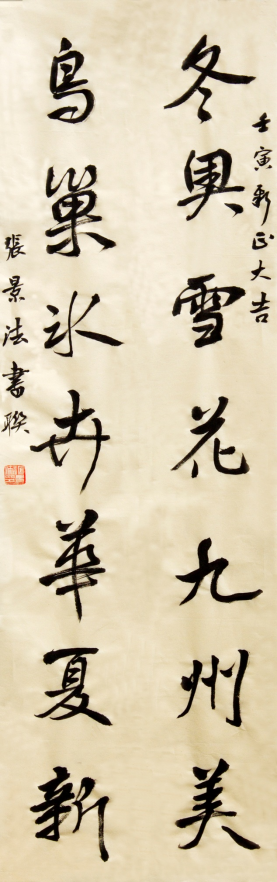 壬寅新正大吉
冬奥雪花九州美
鸟巢冰卉華夏新
張景法書聯